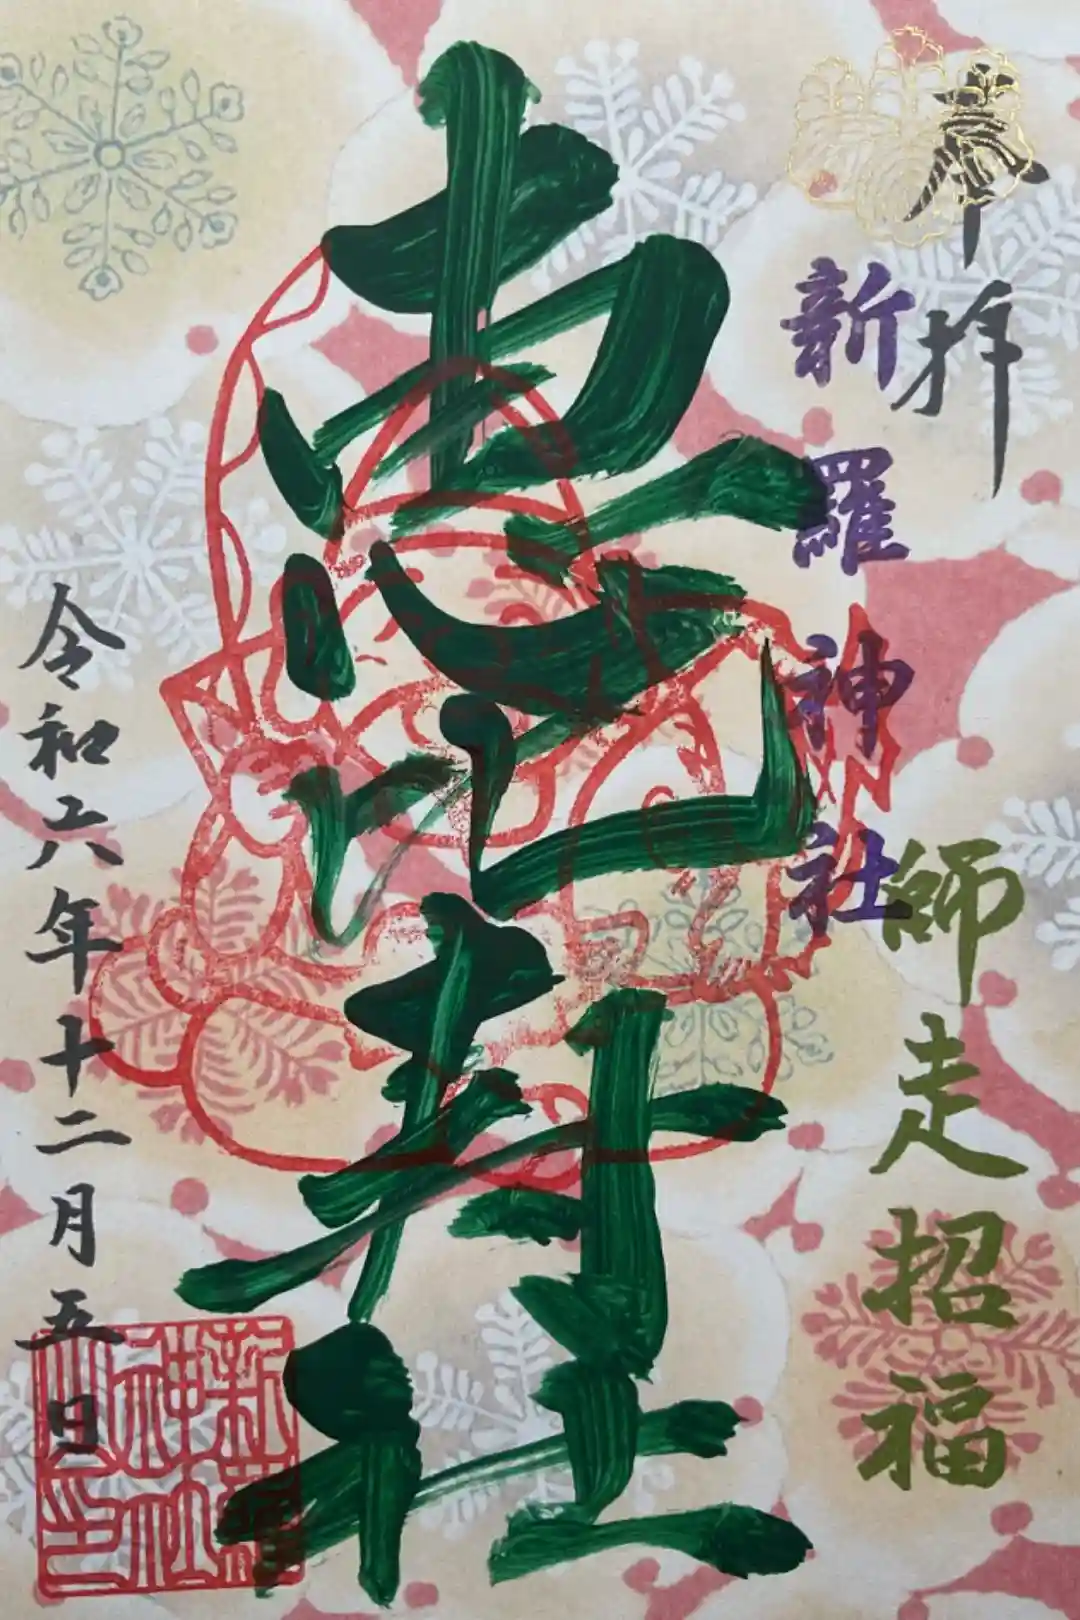 奉拝
師走招福
新羅神社
恵比寿社
令和六年十二月五日
新羅
神社
之印